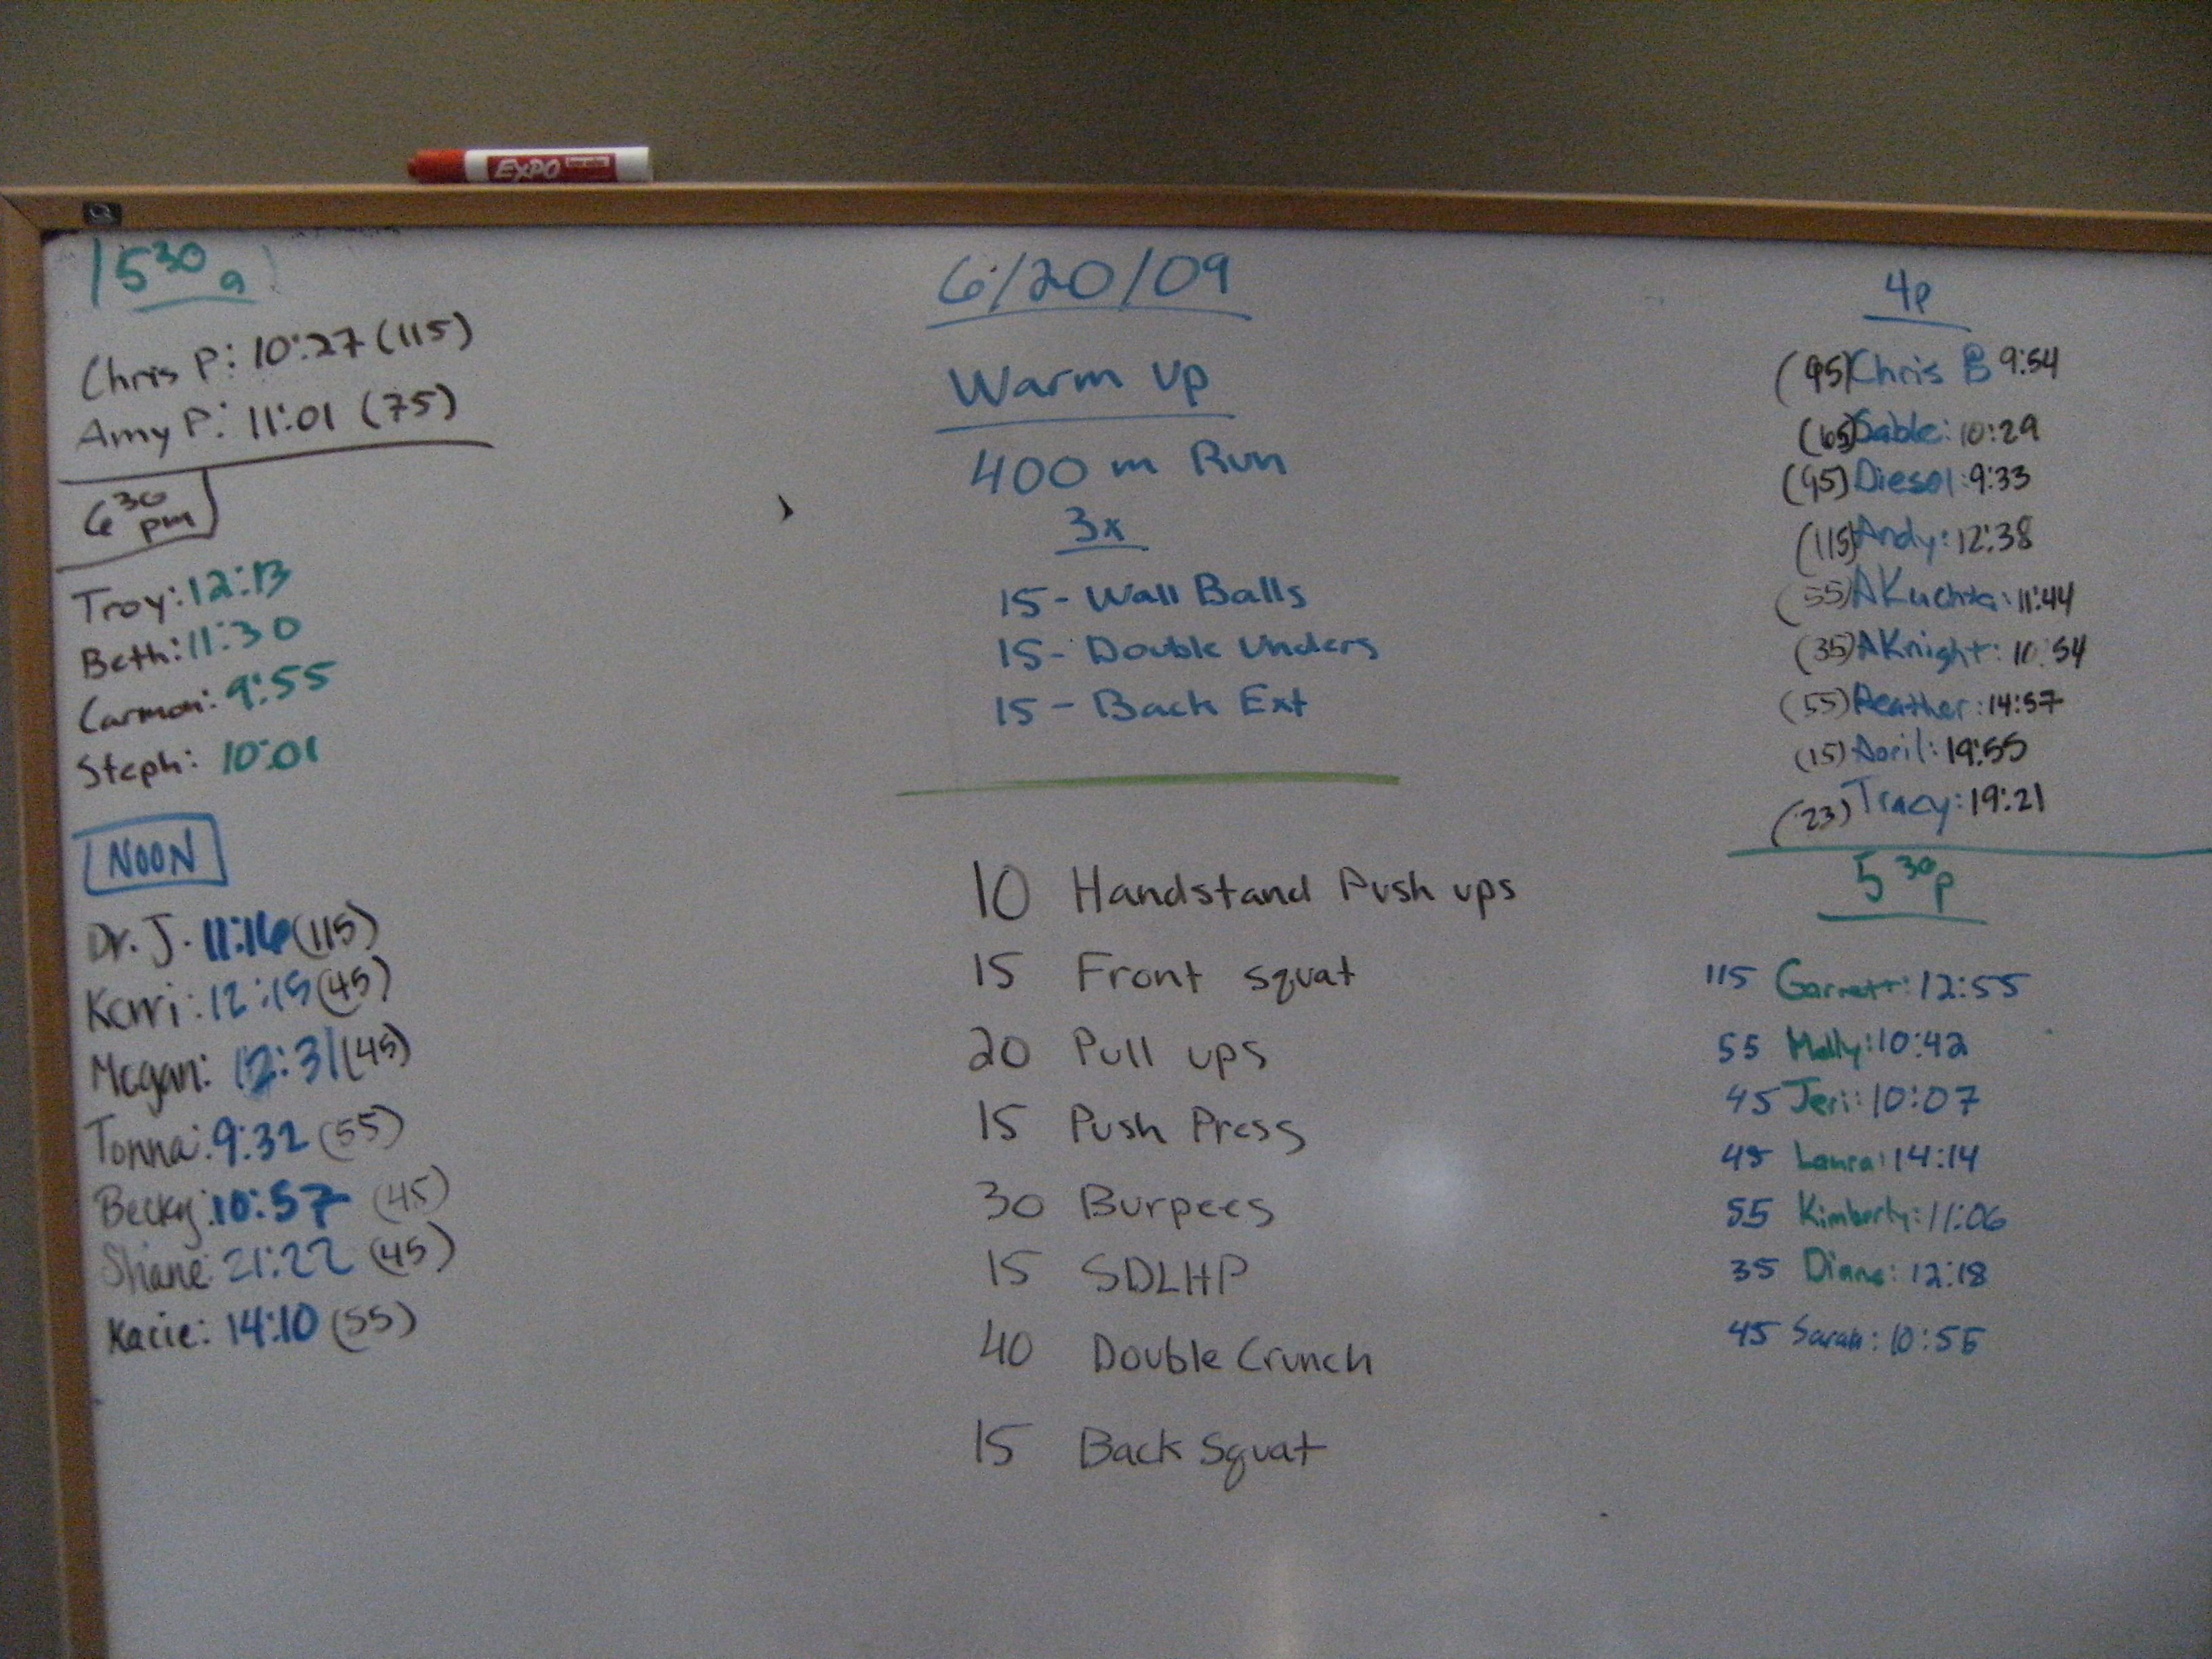 EXPO
5 30 a
Chris P: 10:27 (115)
Amy P: 11:01 (75)
6 30 pm
Troy: 12:13
Beth: 11:30
Carmon: 9:55
Steph: 10:01
NOON
Dr. J. 11:16 (115)
Kerri: 12:15 (45)
Megan: 12:31 (45)
Tonna: 9:32 (55)
Becky: 10:57 (45)
Shane: 21:22 (45)
Kacie: 14:10 (55)
6/20/09
Warm up
400 m Run
3x
15 - Wall Balls
15 - Double Unders
15 - Back Ext
10 Handstand Push ups
15 Front squat
20 Pull ups
15 Push Press
30 Burpees
15 SDLHP
40 Double Crunch
15 Back Squat
4p
(95) Chris B 9:54
(65) Sable: 10:29
(95) Diesel: 9:33
(115) Andy: 12:38
(55) AKuchta: 11:44
(35) AKnight: 10:54
(55) Heather: 14:57
(15) April: 19:55
(23) Tracy: 19:21
5 30 p
115 Garrett: 12:55
55 Molly: 10:42
45 Jeri: 10:07
45 Laura: 14:14
55 Kimberly: 11:06
35 Diane: 12:18
45 Sarah: 10:55